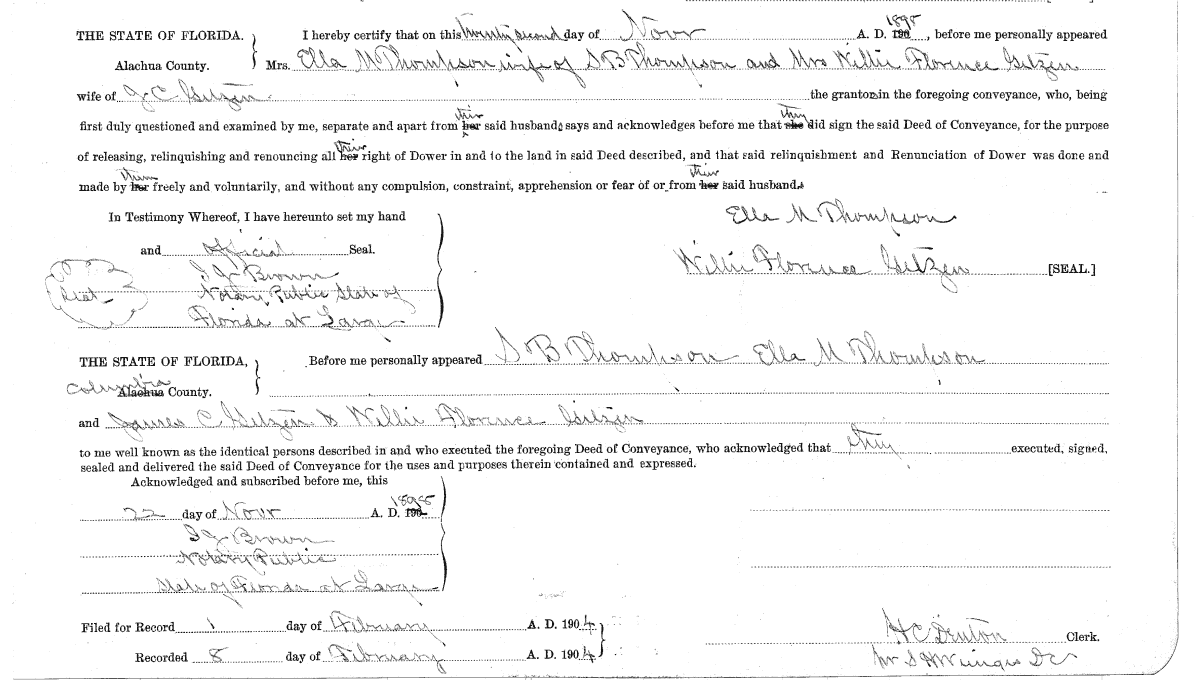 THE STATE OF FLORIDA. I hereby certify that on this twenty second day of Novr A. D. 190 1898, before me personally appeared
Alachua County. Mrs. Ella M Thompson wife of S B Thompson and Mrs Willie Florence Getzen
wife of J C Getzen the grantors in the foregoing conveyance, who, being
first duly questioned and examined by me, separate and apart from her their said husbands says and acknowledges before me that she they did sign the said Deed of Conveyance, for the purpose
of releasing, relinquishing and renouncing all her their right of Dower in and to the land in said Deed described, and that said relinquishment and Renunciation of Dower was done and
made by her them freely and voluntarily, and without any compulsion, constraint, apprehension or fear of or from her their said husbands
In Testimony Whereof, I have hereunto set my hand
Ella M Thompson
and official Seal.
Willie Florence Getzen [SEAL.]
Brown
Seal
Notary Public State of
Florida at Large
THE STATE OF FLORIDA, Before me personally appeared S B Thompson Ella M Thompson
Columbia Alachua County.
and James C Getzen & Willie Florence Getzen
to me well known as the identical persons described in and who executed the foregoing Deed of Conveyance, who acknowledged that they executed, signed,
sealed and delivered the said Deed of Conveyance for the uses and purposes therein contained and expressed.
Acknowledged and subscribed before me, this
22 day of Novr A. D. 190 1898
Brown
Notary Public
State of Florida at Large
Filed for Record 1 day of February A. D. 1904
H C Denton Clerk.
Recorded 8 day of February A. D. 1904